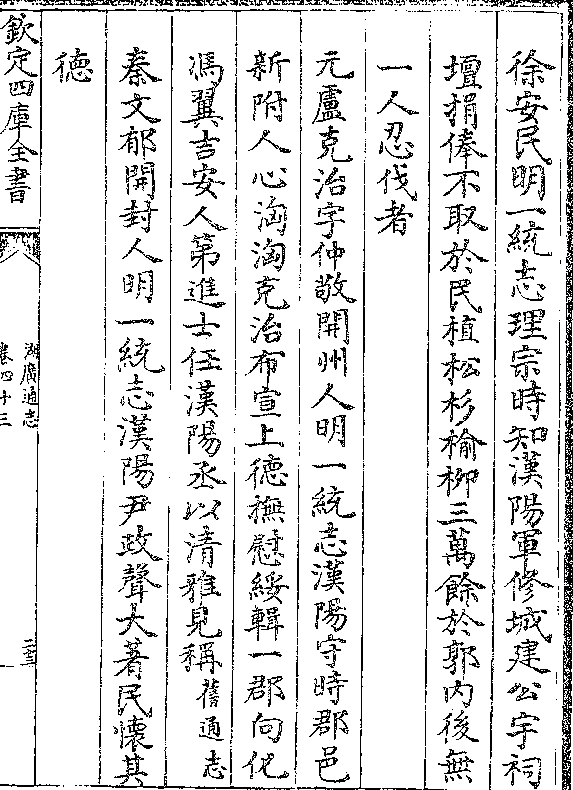 徐安民明一統志理宗時知漢陽軍修城建公宇祠
壇捐俸不取於民植松杉榆柳三萬餘於郭内後無
一人忍伐者
元盧克治字仲敬開州人明一統志漢陽守時郡邑
新附人心洶洶克治布宣上德撫慰綏輯一郡向化
馮翼吉安人第進士任漢陽丞以清雅見稱舊通志
秦文郁開封人明一統志漢陽尹政聲大著民懷其
德
欽定四庫全書
湖廣通志
卷四十三